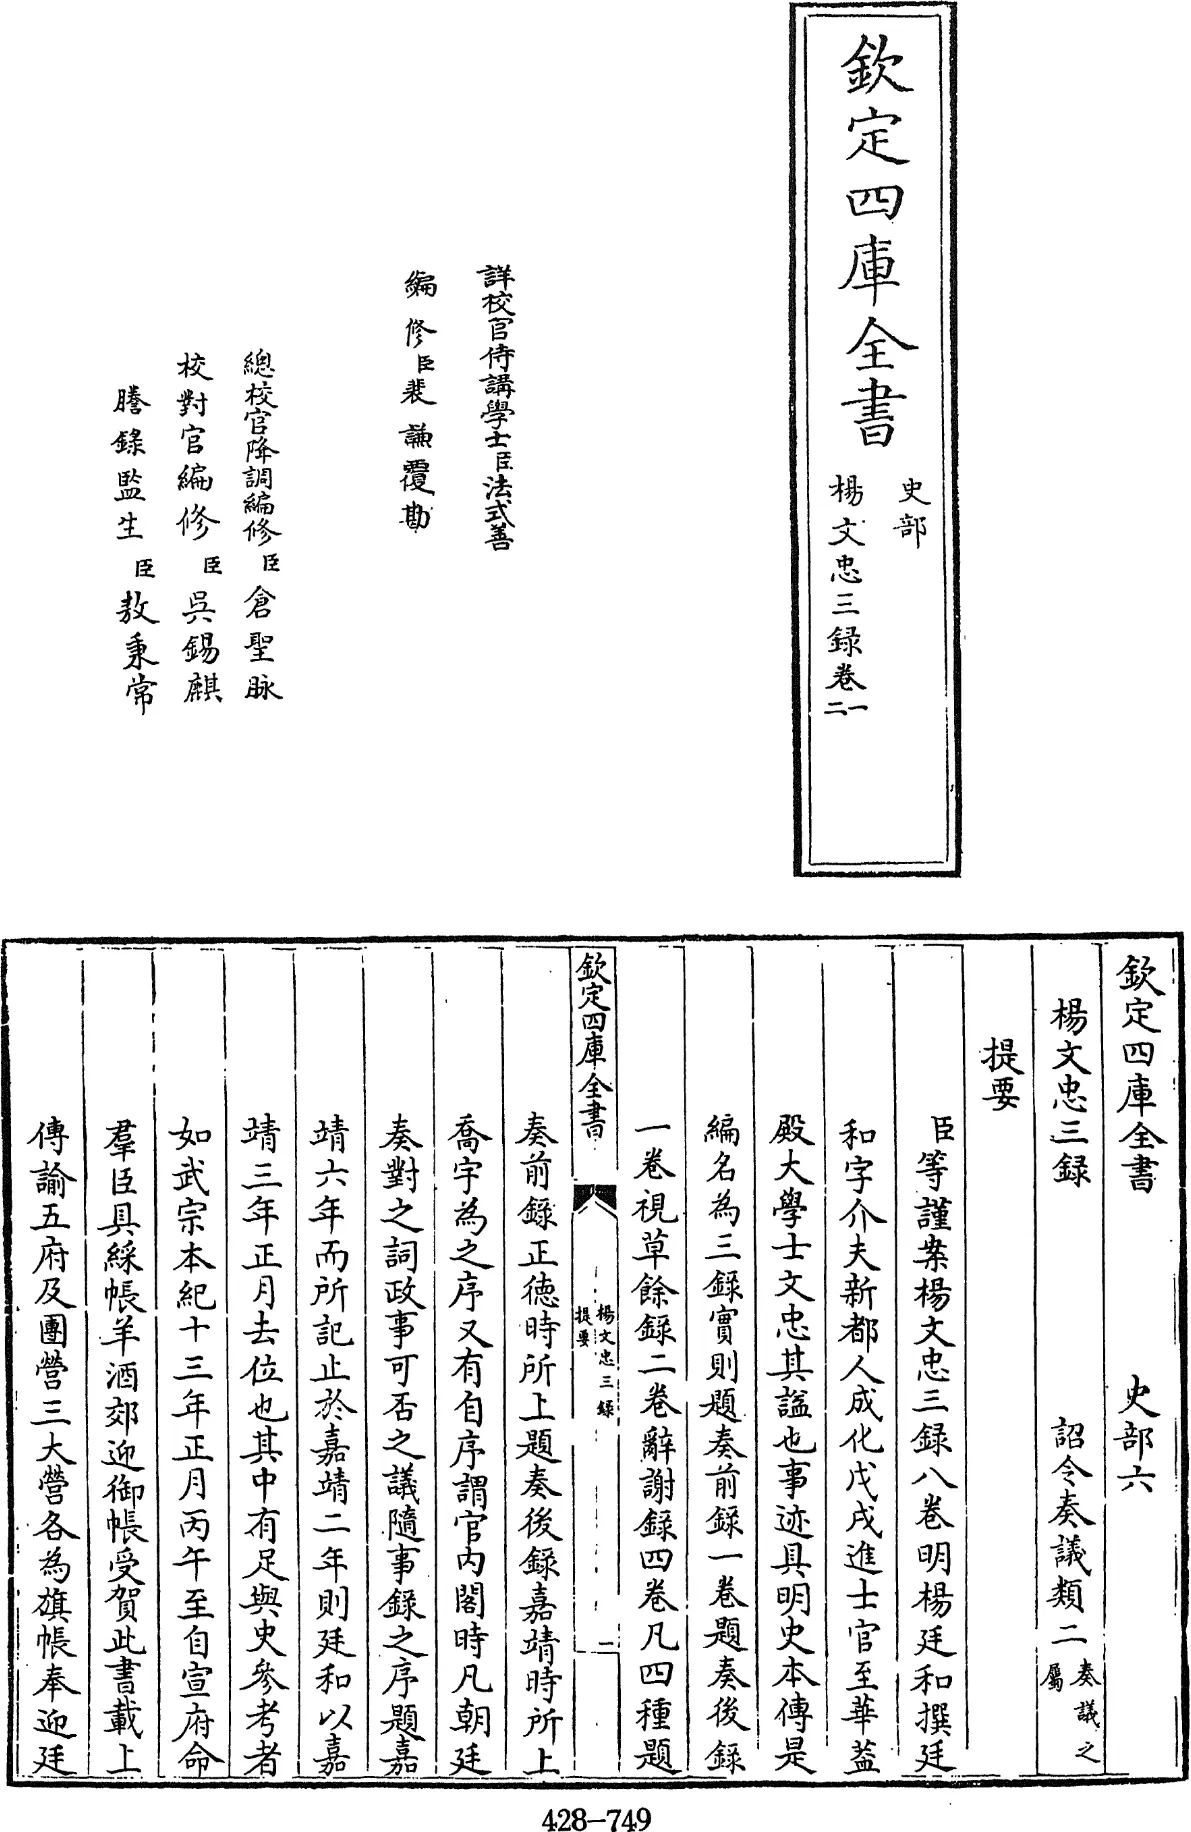 欽定四庫全書
史部
楊文忠三録卷一二
詳校官侍講學士臣法式善
編修臣裴謙覆勘
總校官降調編修臣倉聖脉
校對官編修臣吳錫麒
謄錄監生臣敖秉常
欽定四庫全書 史部六
楊文忠三録 詔令奏議類二奏議之屬
提要
臣等謹案楊文忠三録八卷明楊廷和撰廷
和字介夫新都人成化戊戌進士官至華蓋
殿大學士文忠其諡也事迹具明史本傳是
編名為三錄實則題奏前錄一卷題奏後錄
一卷視草餘錄二卷辭謝錄四卷凡四種題
欽定四庫全書 楊文忠三録提要 二
奏前錄正德時所上題奏後錄嘉靖時所上
喬宇為之序又有自序謂官內閣時凡朝廷
奏對之詞政事可否之議隨事錄之序題嘉
靖六年而所記止於嘉靖二年則廷和以嘉
靖三年正月去位也其中有足與史參考者
如武宗本紀十三年正月丙午至自宣府命
羣臣具綵帳羊酒郊迎御帳受賀此書載上
傳諭五府及團營三大營各為旗帳奉迎廷
428-749